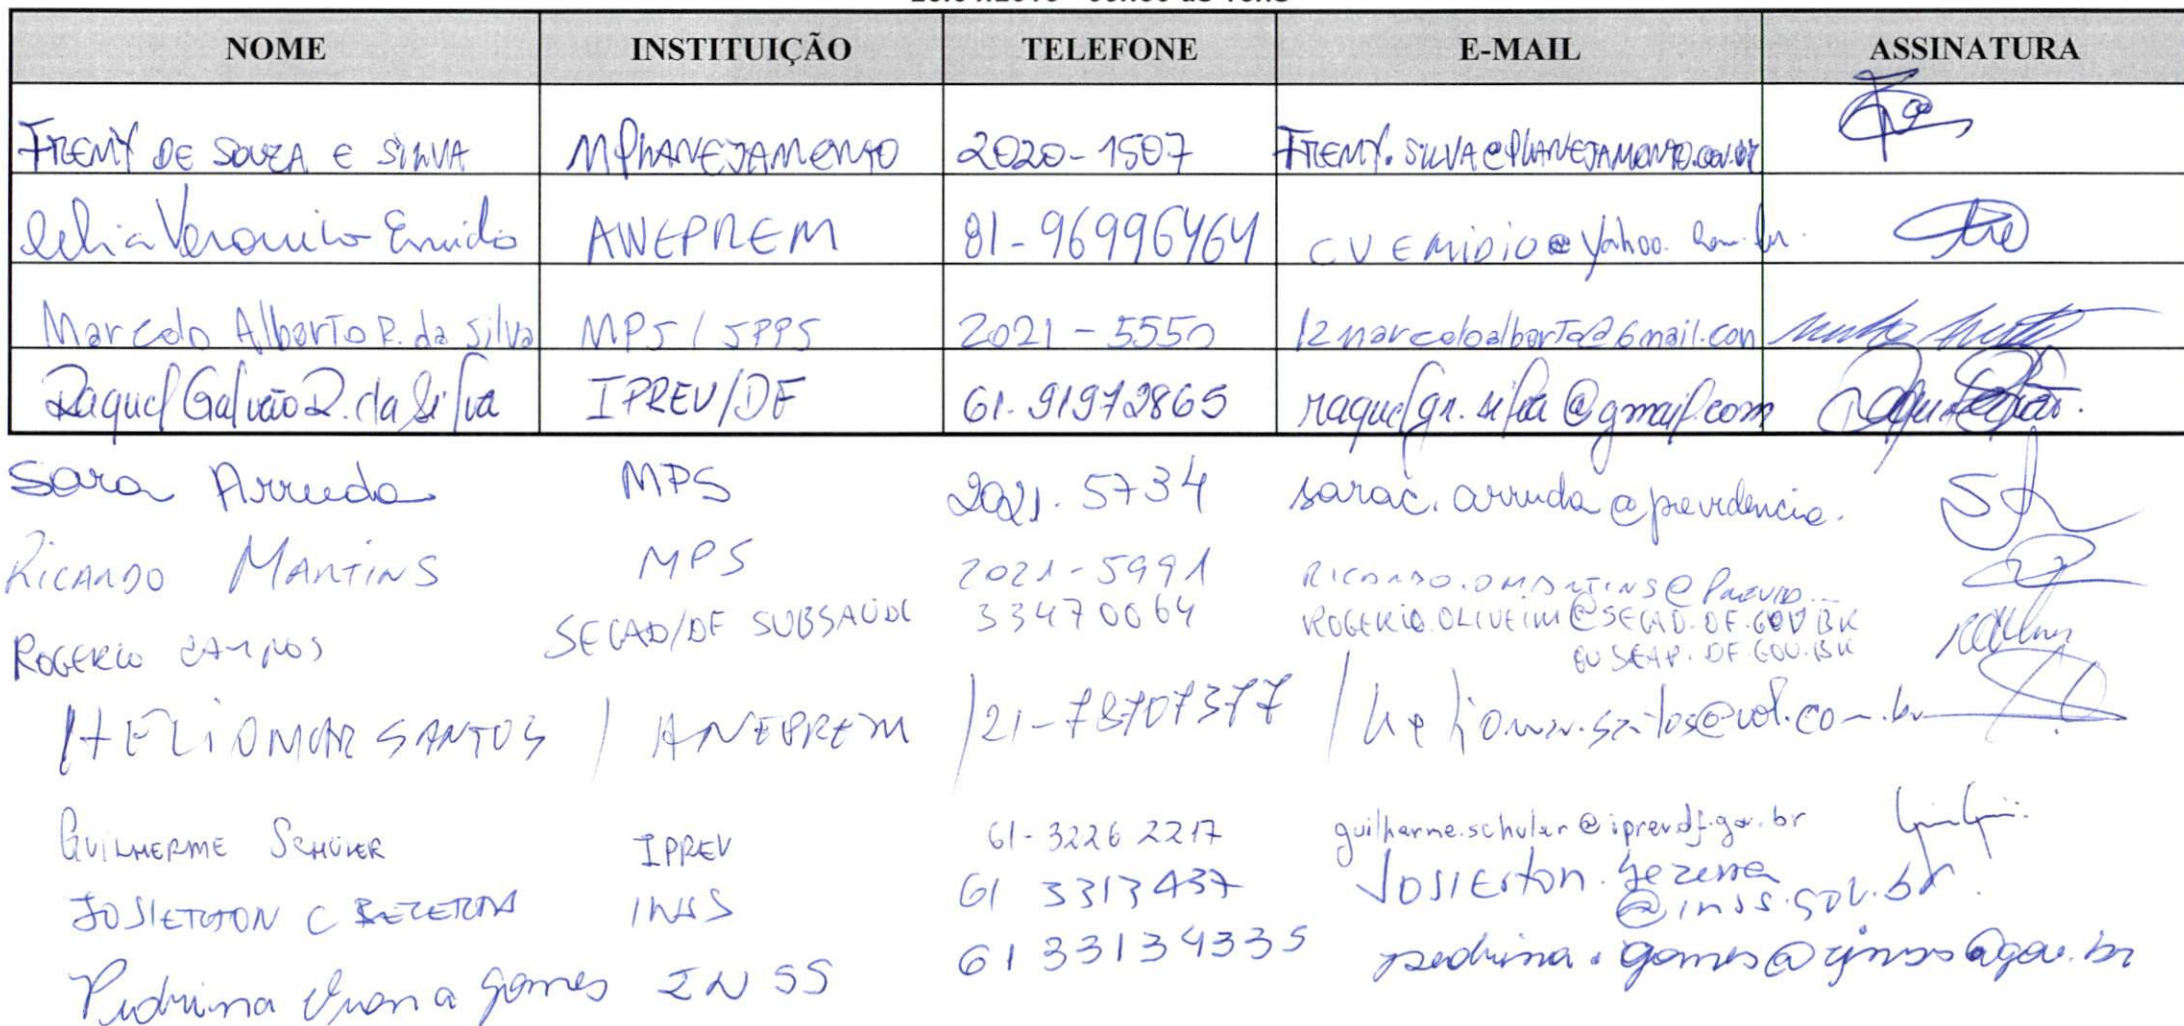 NOME INSTITUIÇÃO TELEFONE E-MAIL ASSINATURA
FREMY DE SOUZA E SILVA MPLANEJAMENTO 2020-1507 FREMY.SILVA@PLANEJAMENTO.GOV.BR
Celia Veronica Emidio ANEPREM 81-96996464 CVEMIDIO@yahoo.com.br
Marcelo Alberto R. da Silva MPS/SPPS 2021-5550 12marceloalberto@Gmail.com
Raquel Galvão R. da Silva IPREV/DF 61.91972865 raquelgr.silva@gmail.com
Sara Arruda MPS 2021.5734 sarac.arruda@previdencia.
RICARDO MARTINS MPS 2021-5991 RICARDO.OMARTINS@PREVID...
ROGERIO CAMPOS SEGAD/DF SUBSAÚDE 33470064 ROGERIO.OLIVEIRA@SEGAD.DF.GOV.BR
OU SEAP.DF.GOV.BR
HELIOMAR SANTOS / ANEPREM /21-78707377 / heliomar.santos@uol.com.br
GUILHERME SCHULER IPREV 61-3226 2217 guilherme.schuler@iprev.df.gov.br
JOSIERTON C BEZERRA INSS 61 3313437 Josierton.bezerra
@inss.gov.br
Pedrina Viana Gomes INSS 61 33134335 pedrina.gomes@inss@gov.br